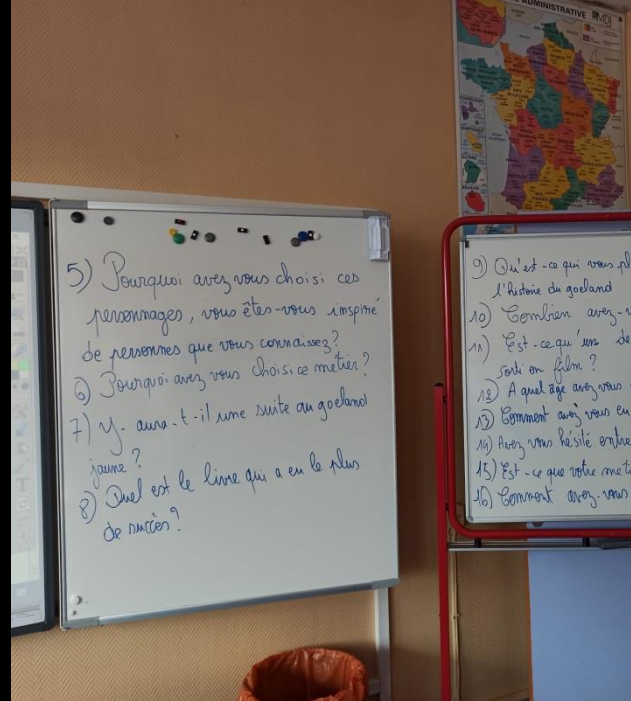 ADMINISTRATIVE MDI
5) Pourquoi avez vous choisi ces
personnages, vous êtes-vous inspiré
de personnes que vous connaissez?
6) Pourquoi avez vous choisi ce métier?
7) Y-aura-t-il une suite au goeland
jaune?
8) Quel est le livre qui a eu le plus
de succès?
9) Qu'est-ce qui vous pl
l'histoire du goeland
10) Combien avez-v
11) Est-ce qu'un de
sorti en film?
12) A quel âge avez vous
13) Comment avez vous eu
14) Avez vous hésité entre
15) Est-ce que votre méti
16) Comment avez-vous